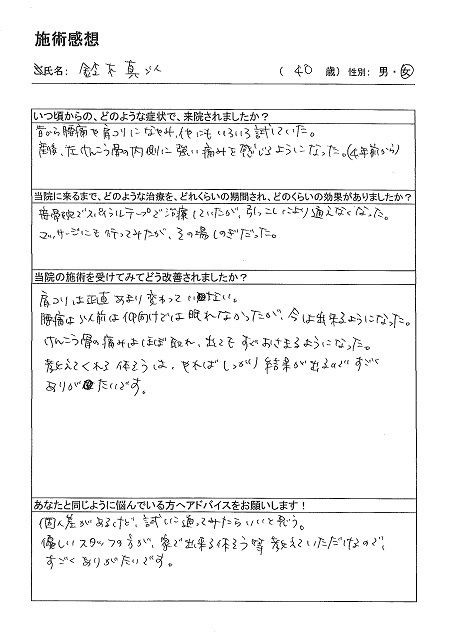 施術感想
氏名: 鈴木真 さん (40 歳) 性別: 男・女
いつ頃からの、どのような症状で、来院されましたか？
昔から腰痛や肩こりになやみ、他にもいろいろ試していた。
産後、左けんこう骨の内側に強い痛みを感じるようになった。(4年前から)
当院に来るまで、どのような治療を、どれくらいの期間され、どのくらいの効果がありましたか？
接骨院でスパイラルテープで治療していたが、引っこしにより通えなくなった。
マッサージにも行ってみたが、その場しのぎだった。
当院の施術を受けてみてどう改善されましたか？
肩こりは正直あまり変わっていない。
腰痛は以前は仰向けでは眠れなかったが、今は出来るようになった。
けんこう骨の痛みはほぼ取れ、出てもすぐおさまるようになった。
教えてくれる体そうは、やればしっかり結果が出るのですごく
ありがたいです。
あなたと同じように悩んでいる方へアドバイスをお願いします！
個人差があるけど、試しに通ってみたらいいと思う。
優しいスタッフの方が、家で出来る体そう等教えていただけるので、
すごくありがたいです。